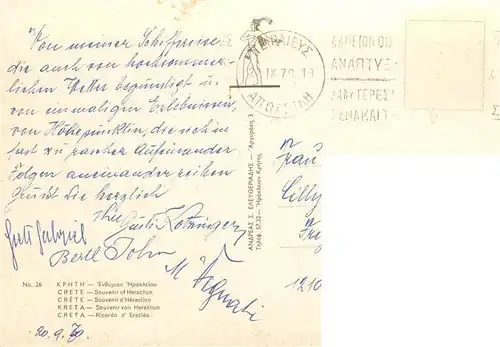 Von meiner Schiffsreise
die auch von hochsommer-
lichem Wetter begünstigt u.
von einmaligen Erlebnissen,
von Höhepunkten, die sich in
fast zu rascher Aufeinander
Folgen aneinander reihen
grüßt Sie herzlich
Ihre
Gusti
Gabriel
Bertl
No. 26
ΚΡΗΤΗ — Ἐνθύμιον Ἡρακλείου
CRETE — Souvenir of Heraclion
CRÈTE — Souvenir d'Héraclion
KRETA — Souvenir von Heraklion
CRETA — Ricordo d' Eraclio
20.9.70
ΑΝΔΡΕΑΣ Σ. ΕΛΕΥΘΕΡΙΑΔΗΣ — Ἀργυράκη 3
Τηλέφ. 57.32 — Ἡράκλειον Κρήτης
ΠΕΙΡΑΙΕΥΣ
IX 70. 18
ΑΠΟΣΤΟΛΗ
ΑΝΑΠΤΥΞ
Frau
Lilly
1210